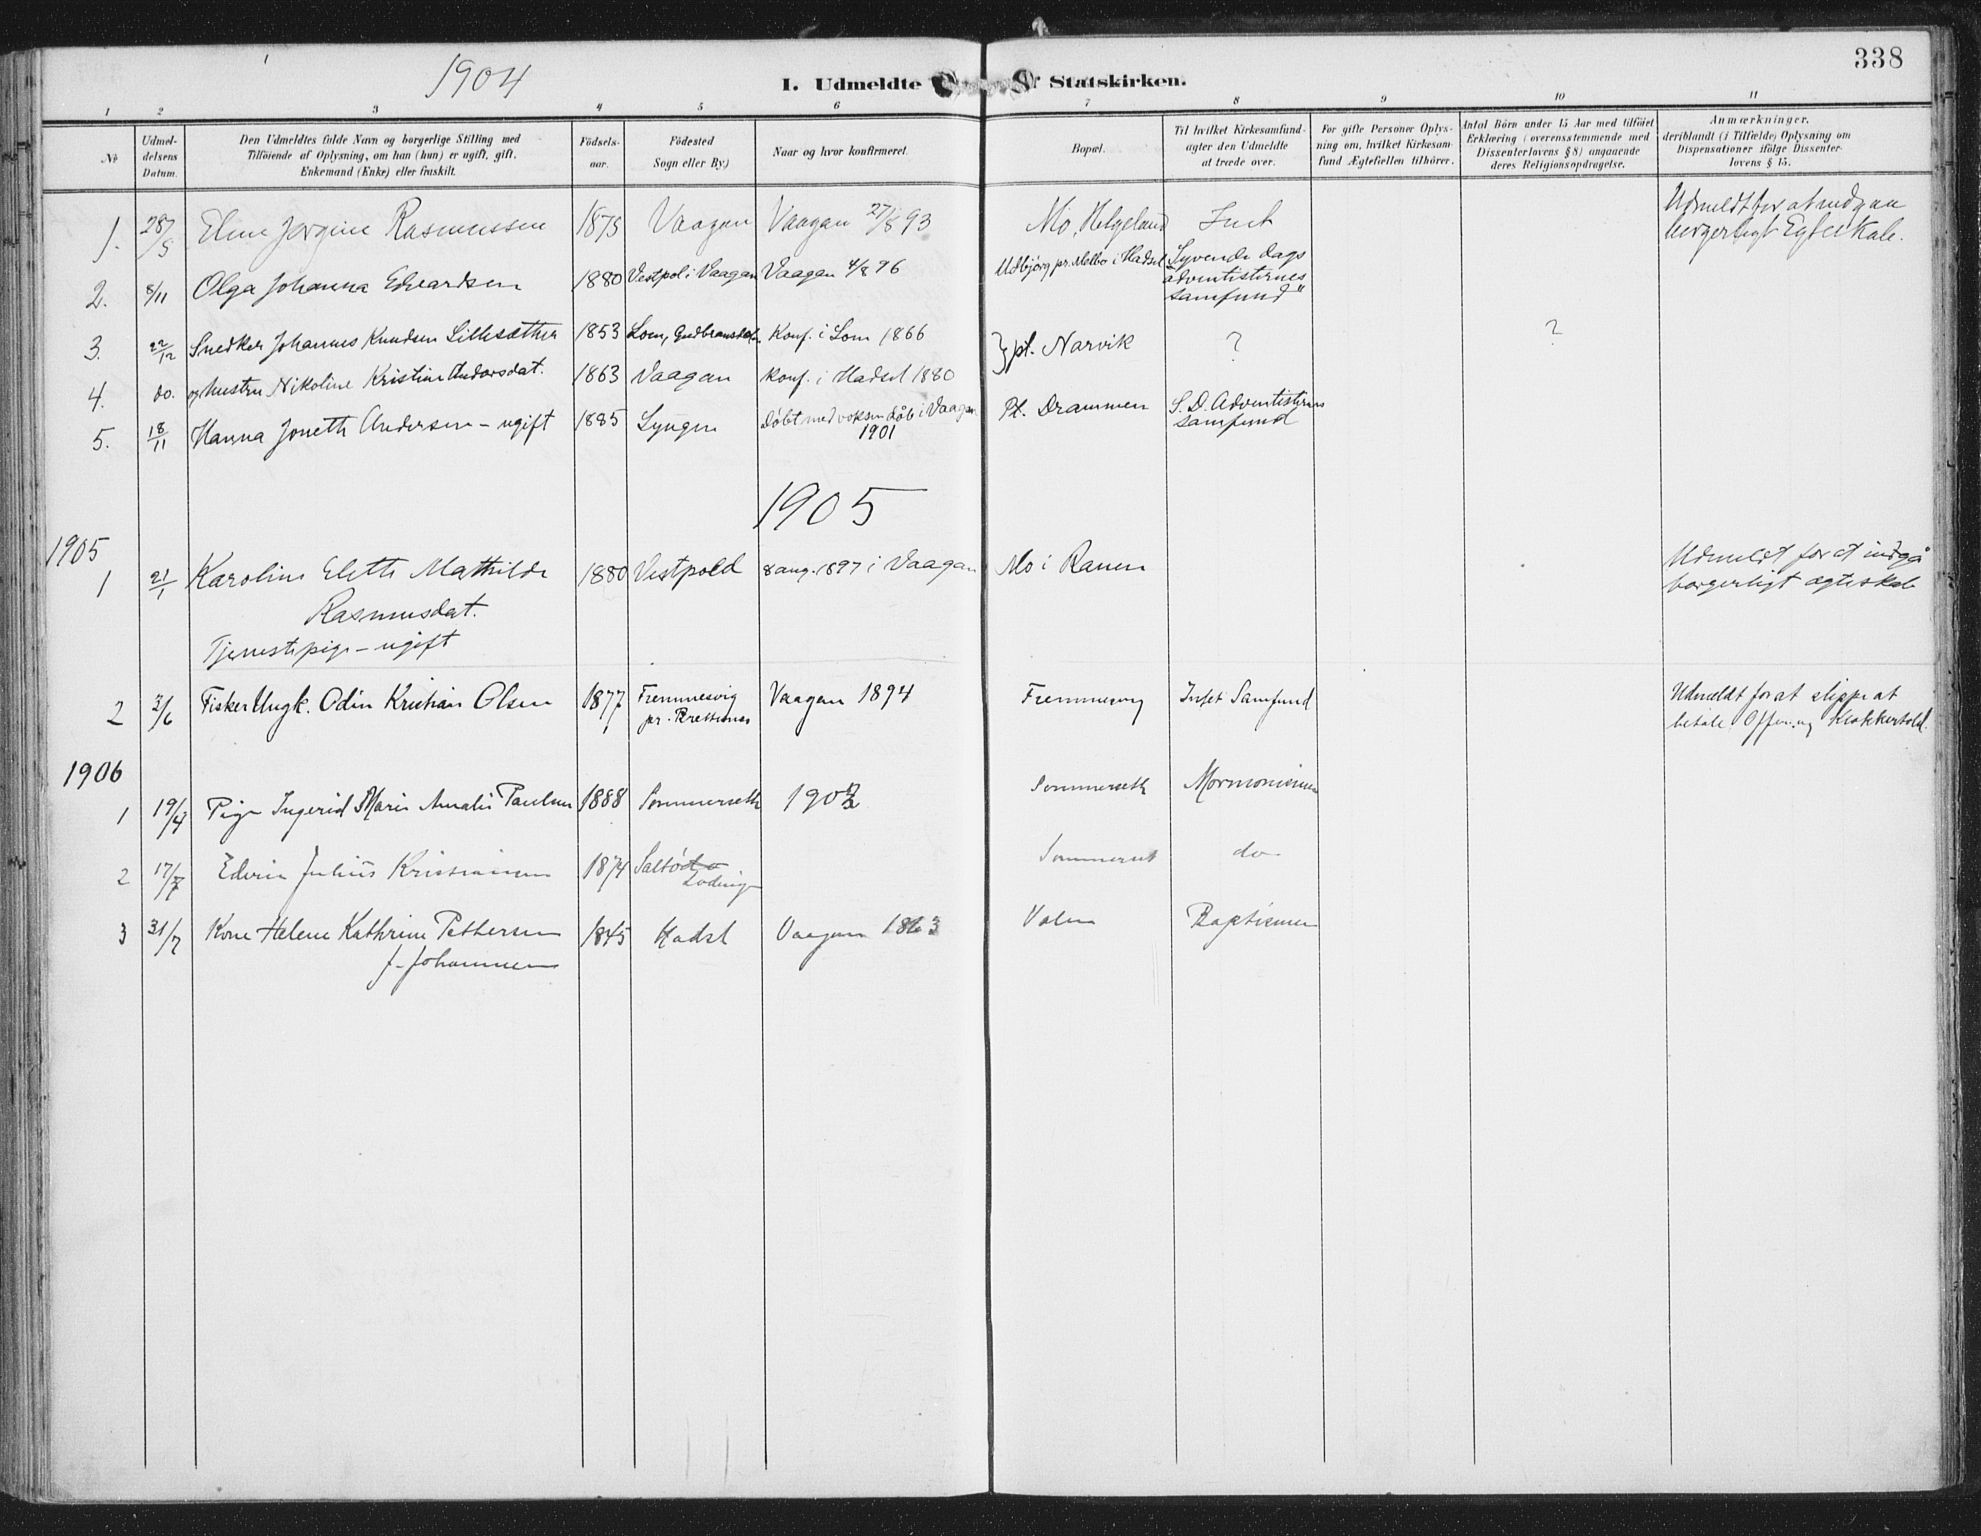 338
1904
I. Udmeldte Statskirken.
1 2 3 4 5 6 7 8 9 10 11
No
Udmeldelsens Datum.
Den Udmeldtes fulde Navn og borgerlige Stilling med
Tilföiende af Oplysning, om han (hun) er ugift, gift.
Enkemand (Enke) eller fraskilt.
Födselsaar.
Födested
Sogn eller By)
Naar og hvor konfirmeret.
Bopæl.
Til hvilket Kirkesamfund
agter den Udmeldte
at træde over.
For gifte Personer Oplys-
ning om, hvilket Kirkesam-
fund Ægtefællen tilhörer.
Antal Börn under 15 Aar med tilföiet
Erklæring (overensstemmende med
Dissenterlovens § 8) angaaende
deres Religionsopdragelse.
Anmærkninger,
deriblandt (i Tilfælde) Oplysning om
Dispensationer ifölge Dissenter-
lovens § 15.
1. 28/5 Eline Jørgine Rasmussen 1875 Vaagan Vaagan 27/8 93 Mo, Helgeland Udmeldt for at indgaa
borgerligt Egteskab.
2. 8/11 Olga Johanna Edvardsen 1880 Vestpol i Vaagan Vaagan 4/8 96 pr. Melbo i Hadsel Syvende dags
adventisternes
samfund"
3. 22/12 Snedker Johannes Knudsen Lillesæther 1853 Lom, Gudbrandsdalen Konf. i Lom 1866 } pt. Narvik ? ?
4. do. og hustru Nikoline Kristine Andorsdat. 1863 Vaagan konf. i Hadsel 1880
5. 18/11 Hanna Jonette Andersen - ugift 1885 Lyngen Døbt med voksen dåb i Vaagan
1901 Pt. Drammen S. D. Adventisternes
samfund
1905
1905
1 21/1 Karoline Elette Mathilde 1880 Vestpold 8 aug. 1897 i Vaagan Mo i Ranen Udmeldt for at indgå
borgerligt ægteskab
Rasmusdat.
Tjenestepige - ugift
2 2/6 Fisker Ungk. Odin Kristian Olsen 1877 Fremmesvig
pr. Brettesnes Vaagan 1894 Fremmesvig Intet Samfund Udmeldt for at slippe at
betale Offer og Klokkertold.
1906
1 19/4 Pige Ingerid Marie Amalie Paulsen 1888 Sommerseth 190 Sommerseth Mormonismen
2 17/7 Edvin Julius Kristiansen 1874 Lødingen Sommerset do
3 31/7 Kone Helene Kathrine Pettersen 1845 Hadsel Vaagan 1863 Volen Baptismen
f. Johannesen